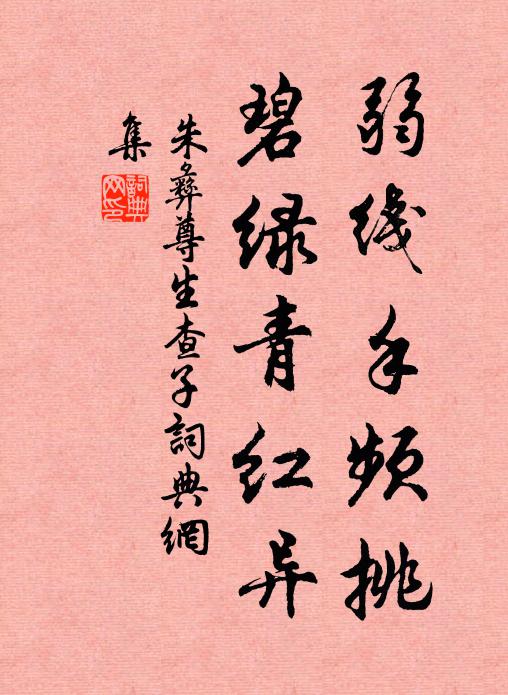 弱线手频挑
碧绿青红异
朱彝尊生查子詞典網
集
詞典网印